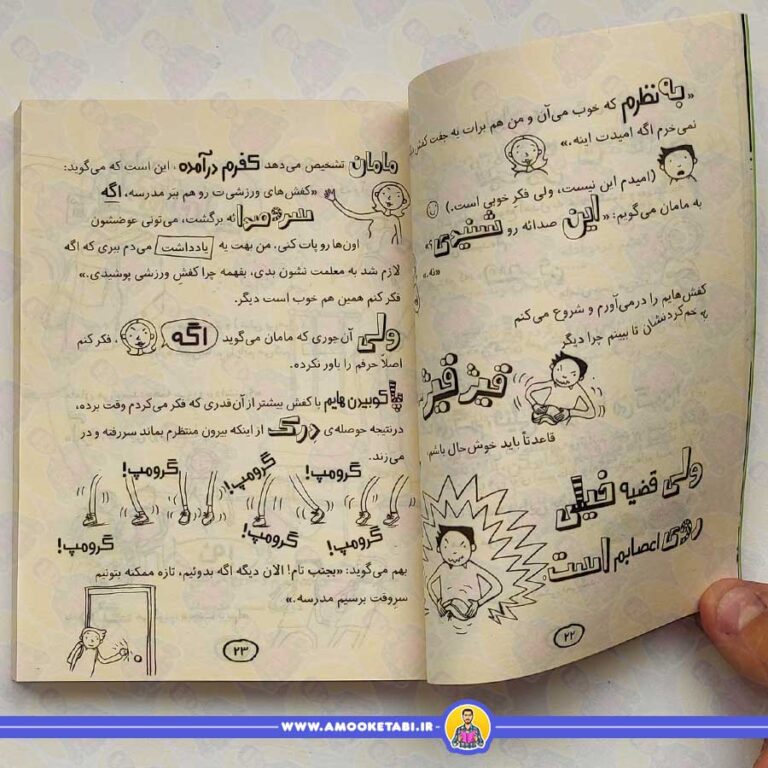 «به نظرم که خوب می‌آن و من هم برات یه جفت کفش
نمی‌خرم اگه امیدت اینه.»
(امیدم این نیست، ولی فکرِ خوبی است.)
به مامان می‌گویم: «این صدائه رو شنیدی؟»
«نه.»
کفش‌هایم را درمی‌آورم و شروع می‌کنم
به خم‌کردنشان تا ببینم چرا دیگر
قیژ قیژ
قاعدتاً باید خوش‌حال باشم
ولی قضیه خیلی
روی اعصابم است.
۲۲
مامان تشخیص می‌دهد کفرم درآمده، این است که می‌گوید:
«کفش‌های ورزشی‌ت رو هم ببَر مدرسه، اگه
سروصدائه برگشت، می‌تونی عوضشون
اون‌ها رو پات کنی. من بهت یه یادداشت می‌دم ببری که اگه
لازم شد به معلمت نشون بدی، بفهمه چرا کفشِ ورزشی پوشیدی.»
فکر کنم همین هم خوب است دیگر.
ولی آن‌جوری که مامان می‌گوید اگه، فکر کنم
اصلاً حرفم را باور نکرده.
پاکوبیدن‌هایم با کفش بیشتر از آن‌قدری که فکر می‌کردم وقت برده،
درنتیجه حوصله‌ی درک از اینکه بیرون منتظرم بماند سررفته و در
می‌زند.
گرومپ! گرومپ! گرومپ!
گرومپ! گرومپ! گرومپ!
بهم می‌گوید: «بجنب تام! الان دیگه اگه بدوئیم، تازه ممکنه بتونیم
سرِوقت برسیم مدرسه.»
۲۳
WWW.AMOOKETABI.IR